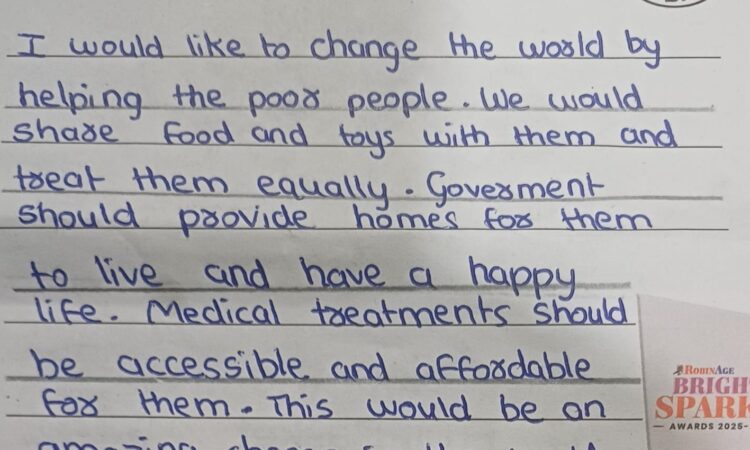 I would like to change the world by
helping the poor people. We would
share food and toys with them and
treat them equally. Goverment
should provide homes for them
to live and have a happy
life. Medical treatments should
be accessible and affordable
for them. This would be an
ROBINAGE
BRIGH
SPARK
AWARDS 2025-